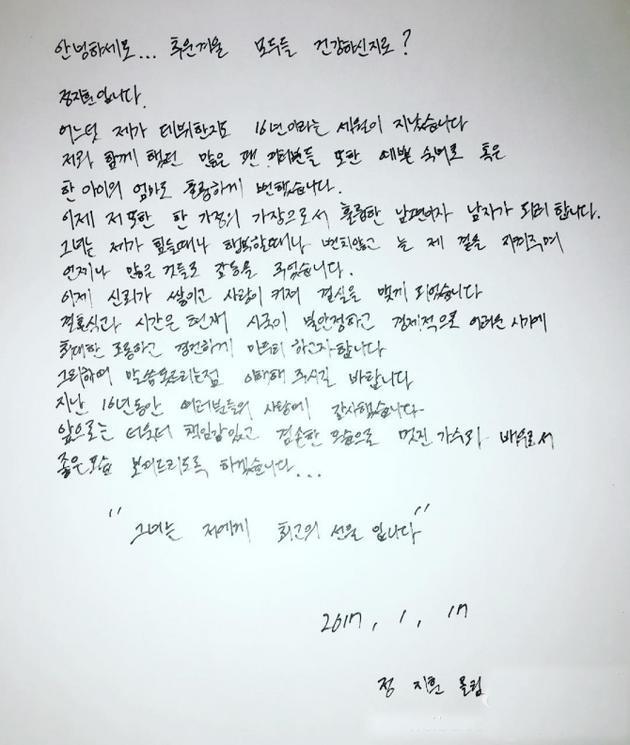 안녕하세요... 추운겨울 모두들 건강하신지요?
정지훈입니다.
어느덧 제가 데뷔한지도 16년이라는 세월이 지났습니다
저와 함께 했던 많은 팬 여러분들 또한 예쁜 숙녀로 혹은
한 아이의 엄마로 훌륭하게 변했습니다.
이제 저 또한 한 가정의 가장으로서 훌륭한 남편이자 남자가 되려 합니다.
그녀는 제가 힘들때나 행복할때나 변치않고 늘 제 곁을 지켜주며
언제나 많은 것들로 감동을 주었습니다.
이제 신뢰가 쌓이고 사랑이 커져 결실을 맺게 되었습니다
결혼식과 시간은 현재 시국이 불안정하고 경제적으로 어려운 시기에
최대한 조용하고 경건하게 마무리 하고자합니다
그리하여 말씀못드리는점 이해해 주시길 바랍니다
지난 16년동안 여러분들의 사랑에 감사했습니다
앞으로는 더욱더 책임감있고 겸손한 모습으로 멋진 가수와 배우로서
좋은모습 보여드리도록 하겠습니다...
"그녀는 저에게 최고의 선물 입니다"
2017, 1, 17
정 지훈 올림